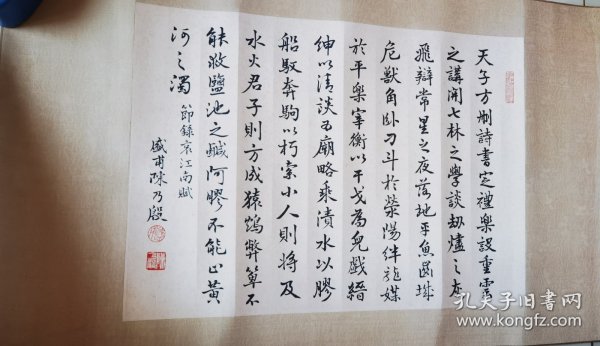 天子方刪詩書定禮樂設重雲
之講開士林之學談劫燼之灰
飛辯常星之夜落地平魚齒城
危獸角卧刁斗於滎陽絆龍媒
於平樂宰衡以干戈為兒戲縉
紳以清談為廟略乘漬水以膠
船馭奔駒以朽索小人則將及
水火君子則方成猿鶴弊箄不
能救鹽池之鹹阿膠不能止黃
河之濁
節錄哀江南賦
盛甫陳乃
孔夫子旧书网
www.kongfz.com